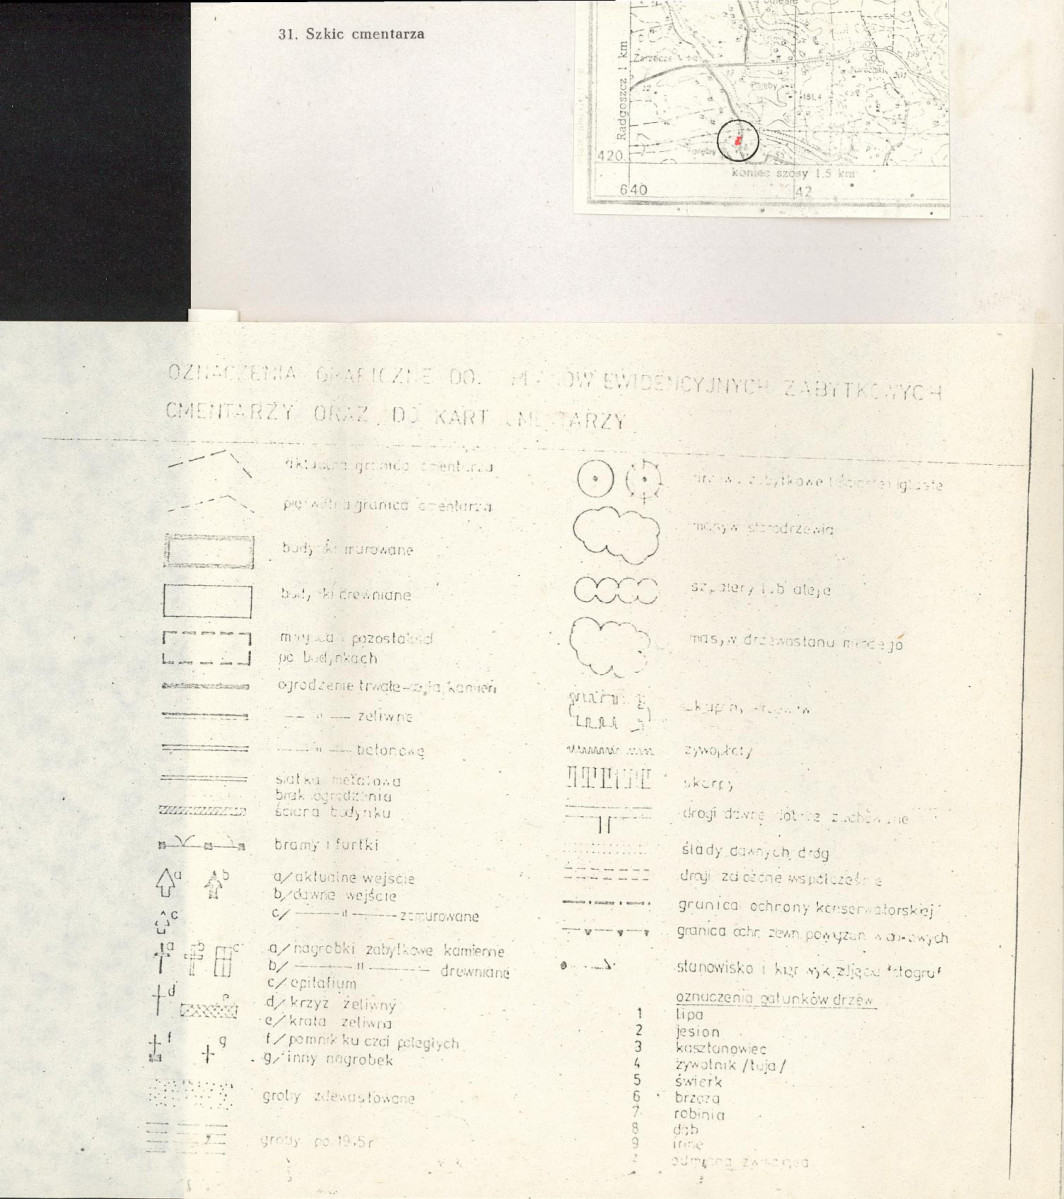 31. Szkic cmentarza
Radgoszcz 1 km
Zarzecze
151,4
420
koniec szosy 1.5 km
640
42
OZNACZENIA GRAFICZNE DO EWIDENCYJNYCH ZABYTKOWYCH
CMENTARZY ORAZ DO KART CMENTARZY
aktualna granica cmentarza
pierwotna granica cmentarza
budynki murowane
budynki drewniane
miejsca i pozostałości
po budynkach
ogrodzenie trwałe-cegła, kamień
— " — żeliwne
— " — betonowe
siatka metalowa
brak ogrodzenia
ściana budynku
bramy i furtki
a b
a/aktualne wejście
b/dawne wejście
c
c/ — " — zamurowane
a b c
a/nagrobki zabytkowe kamienne
b/ — " — drewniane
c/epitafium
d e
d/krzyż żeliwny
e/krata żeliwna
f g
f/pomnik ku czci poległych
g/inny nagrobek
groby zdewastowane
groby po 1945 r
drzewa zabytkowe liściaste i iglaste
masyw starodrzewia
szpalery lub aleje
masyw drzewostanu młodego
skupiny krzewów
żywopłoty
skarpy
drogi dawne
ślady dawnych dróg
drogi założone współcześnie
granica ochrony konserwatorskiej
granica ochr. zewn. powiązań widokowych
stanowisko i kier. wyk. zdjęcia fotograf
oznaczenia gatunków drzew
1 lipa
2 jesion
3 kasztanowiec
4 żywotnik /tuja/
5 świerk
6 brzoza
7 robinia
8 dąb
9 inne
odmiana zwisająca